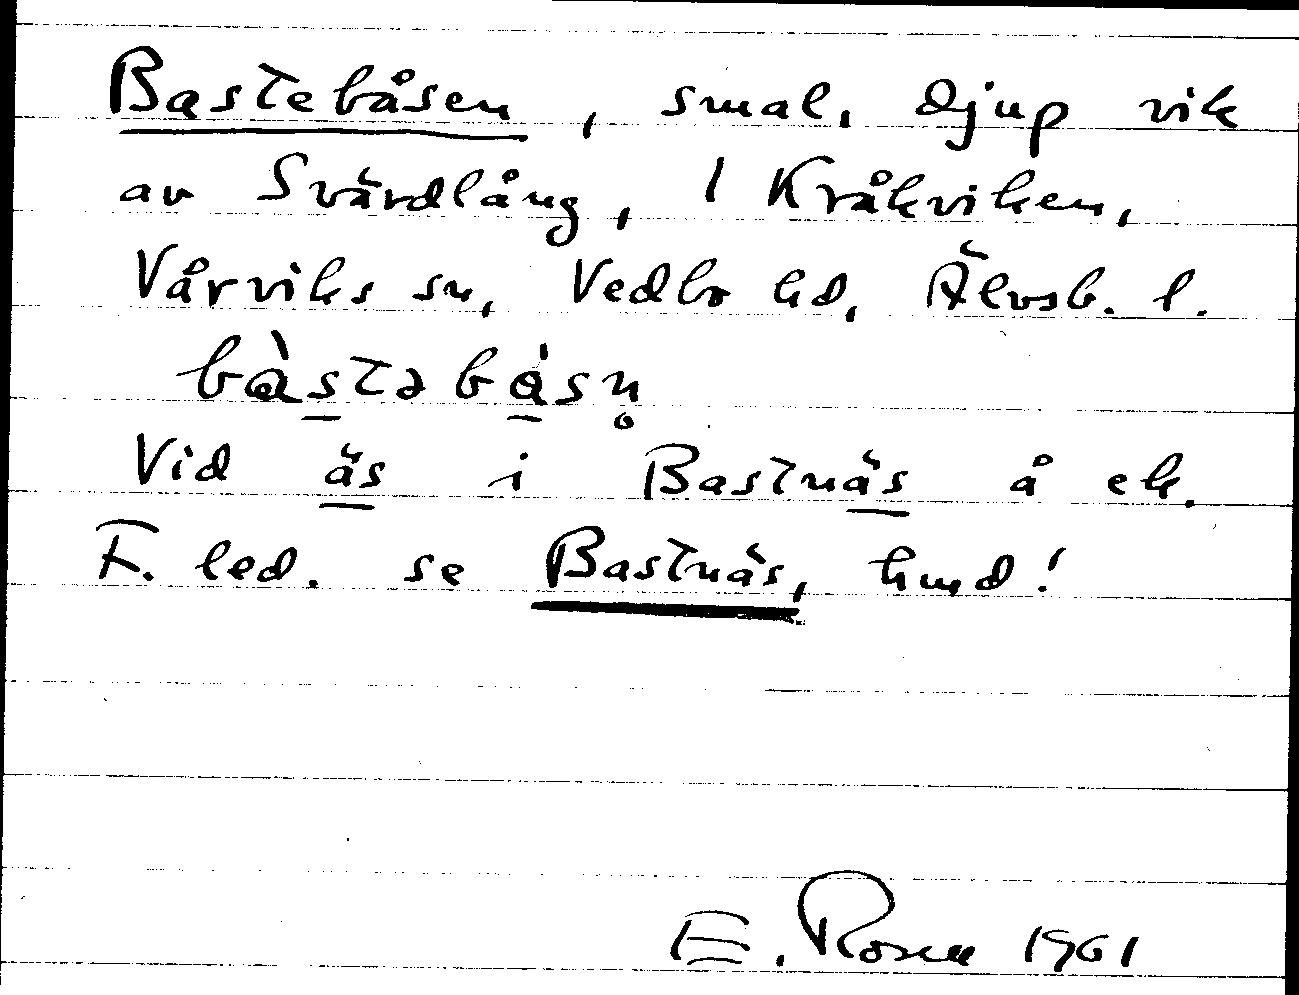 Bastebåsen, smal, djup vik
av Svärdlång, i Kråkviken,
Vårviks sn, Vedbo hd, Älvsb. l.
bàstəbåsn̥
Vid äs i Bastnäs å ek.
F. led. se Bastnäs, hmd!
E. Rosen 1961